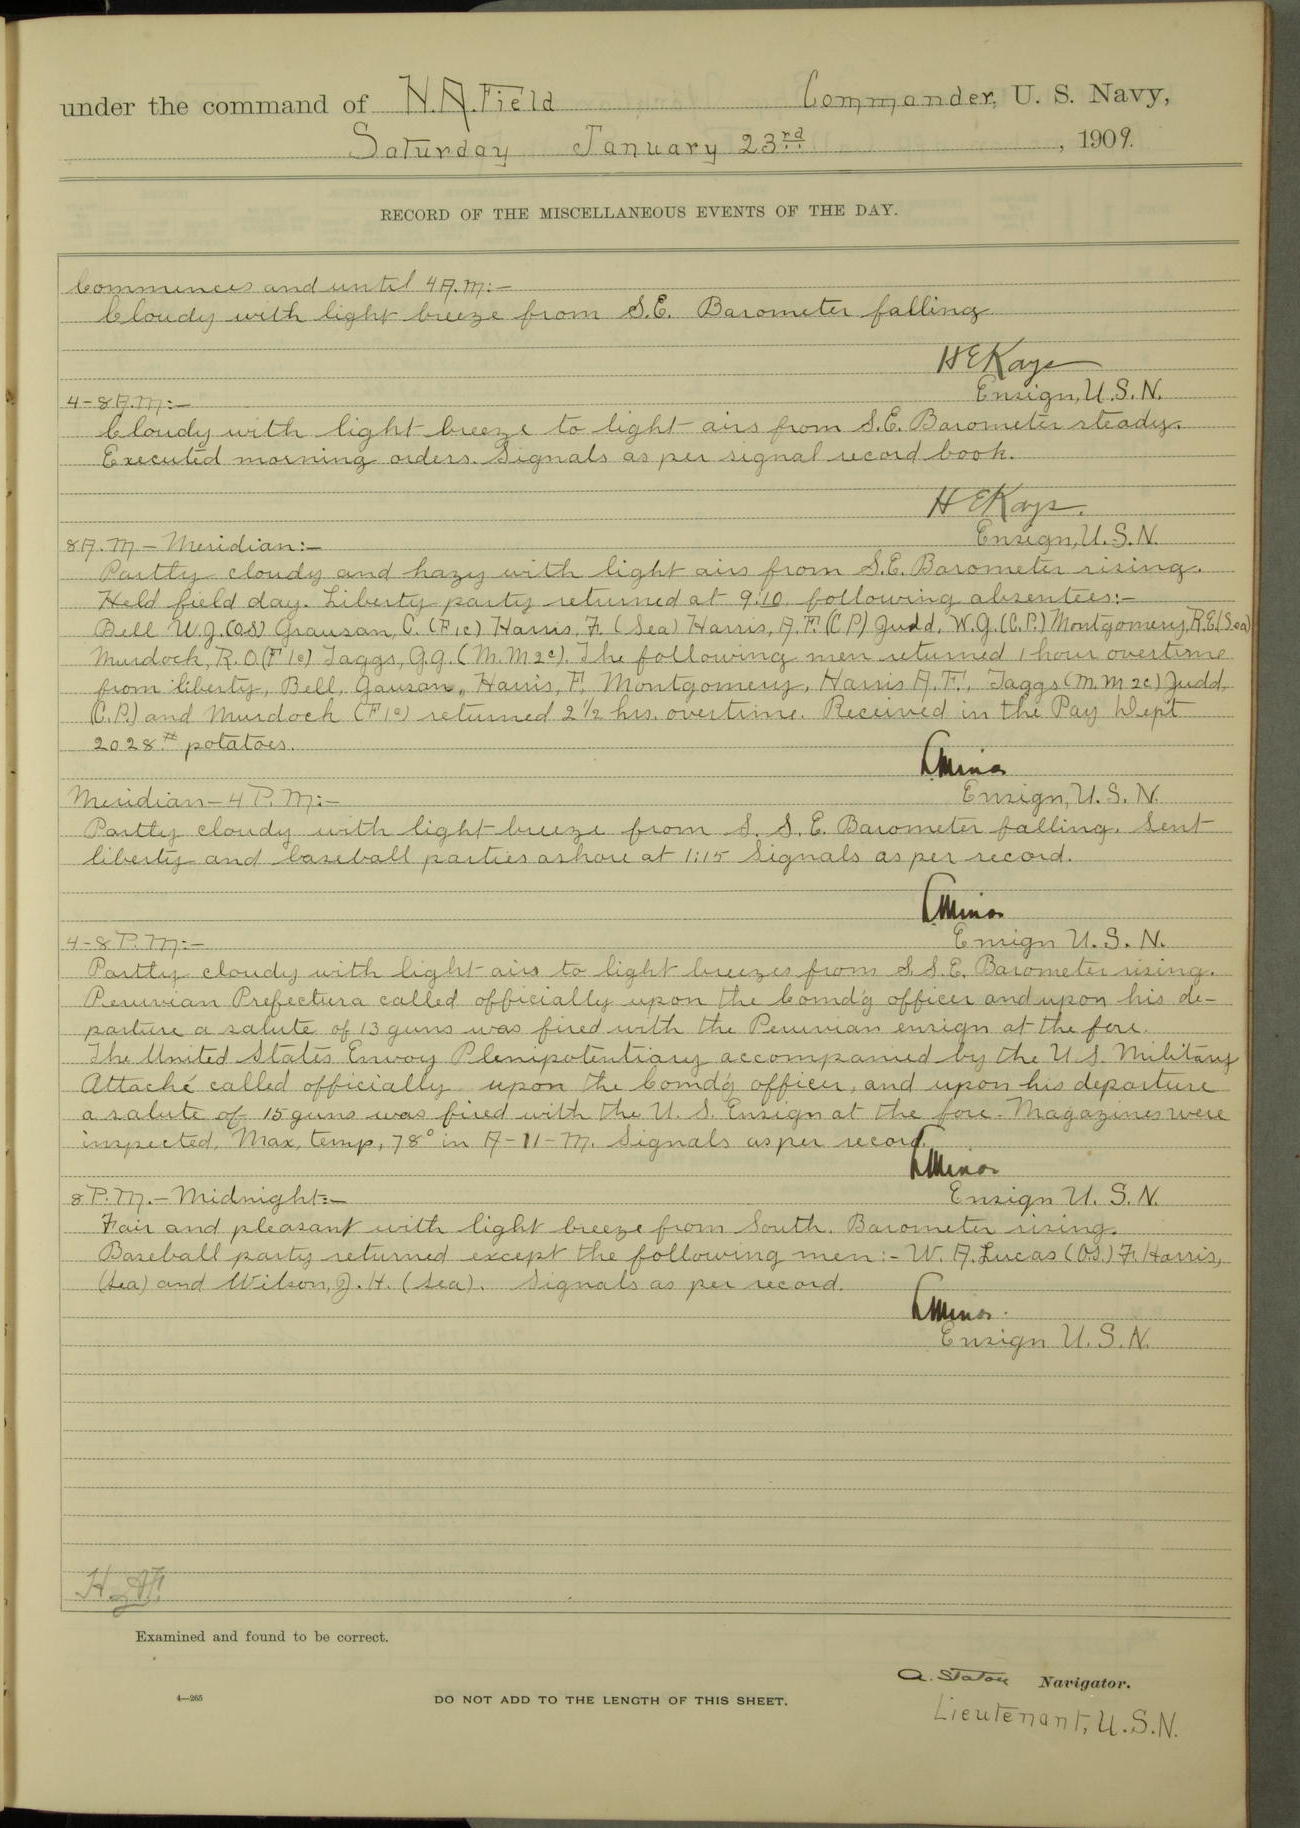 under the command of H.A. Field Commander, U. S. Navy,
Saturday January 23rd, 1909.
RECORD OF THE MISCELLANEOUS EVENTS OF THE DAY.
Commences and until 4 A.M:-
Cloudy with light breeze from S.E. Barometer falling
H E Kays
Ensign, U.S.N.
4-8 A.M:-
Cloudy with light breeze to light airs from S.E. Barometer steady.
Executed morning orders. Signals as per signal record book.
H E Kays.
Ensign, U.S.N.
8 A.M - Meridian:-
Partly cloudy and hazy with light airs from S.E. Barometer rising.
Held field day. Liberty party returned at 9:10. following absentees:-
Bell W.J. (OS) Grausan, C. (F1c) Harris, F. (Sea) Harris, A.F. (C.P.) Judd, W.G. (C.P.) Montgomery, R.E. (Sea)
Murdock, R.O (F1c) Taggs, G.G. (M.M 2c). The following men returned 1 hour overtime
from liberty, Bell, Gauson, Harris, F, Montgomery, Harris A.F., Taggs (M.M 2c) Judd,
(C.P.) and Murdock (F1c) returned 2 1/2 hrs. overtime. Received in the Pay Dept
2028# potatoes.
Minor
Ensign, U.S.N.
Meridian - 4 P.M:-
Partly cloudy with light breeze from S. S. E. Barometer falling. Sent
liberty and baseball parties ashore at 1:15 Signals as per record.
Minor
Ensign U.S.N.
4-8 P.M:-
Partly cloudy with light airs to light breezes from S.S.E. Barometer rising.
Peruvian Prefectura called officially upon the Comd'g officer and upon his de-
parture a salute of 13 guns was fired with the Peruvian ensign at the fore.
The United States Envoy Plenipotentiary accompanied by the U.S. Military
Attaché called officially upon the Comd'g officer, and upon his departure
a salute of 15 guns was fired with the U. S. Ensign at the fore. Magazines were
inspected. Max, temp, 78° in A-11-M. Signals as per record.
Minor
Ensign U. S. N.
8 P.M. - Midnight:-
Fair and pleasant with light breeze from South. Barometer rising.
Baseball party returned except the following men:- W. A. Lucas (OS.) F. Harris,
(Sea) and Wilson, J. H. (Sea). Signals as per record.
Minor
Ensign U.S.N.
H.A.F.
Examined and found to be correct.
A. Staton Navigator.
4—265
DO NOT ADD TO THE LENGTH OF THIS SHEET.
Lieutenant, U.S.N.